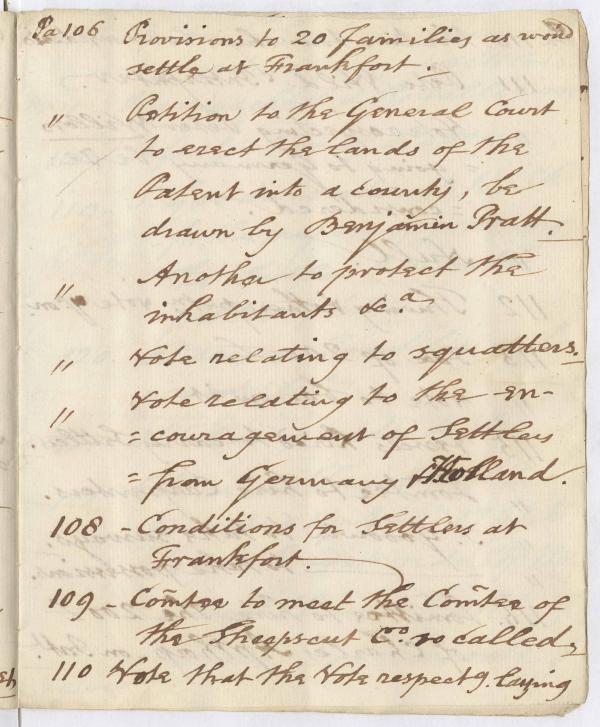 Pa 106 Provisions to 20 families as would
settle at Frankfort.
" Petition to the General Court
to erect the lands of the
Patent into a county, be
drawn by Benjamin Pratt.
" Another to protect the
inhabitants &c.a
" Vote relating to squatters.
" Vote relating to the en-
= couragement of Settlers
= from Germany & Holland.
108 - Conditions for Settlers at
Frankfort.
109 - Comtee to meet the Comtee of
the Sheepscut Co. so called,
110 Vote that the Vote respectg. laying